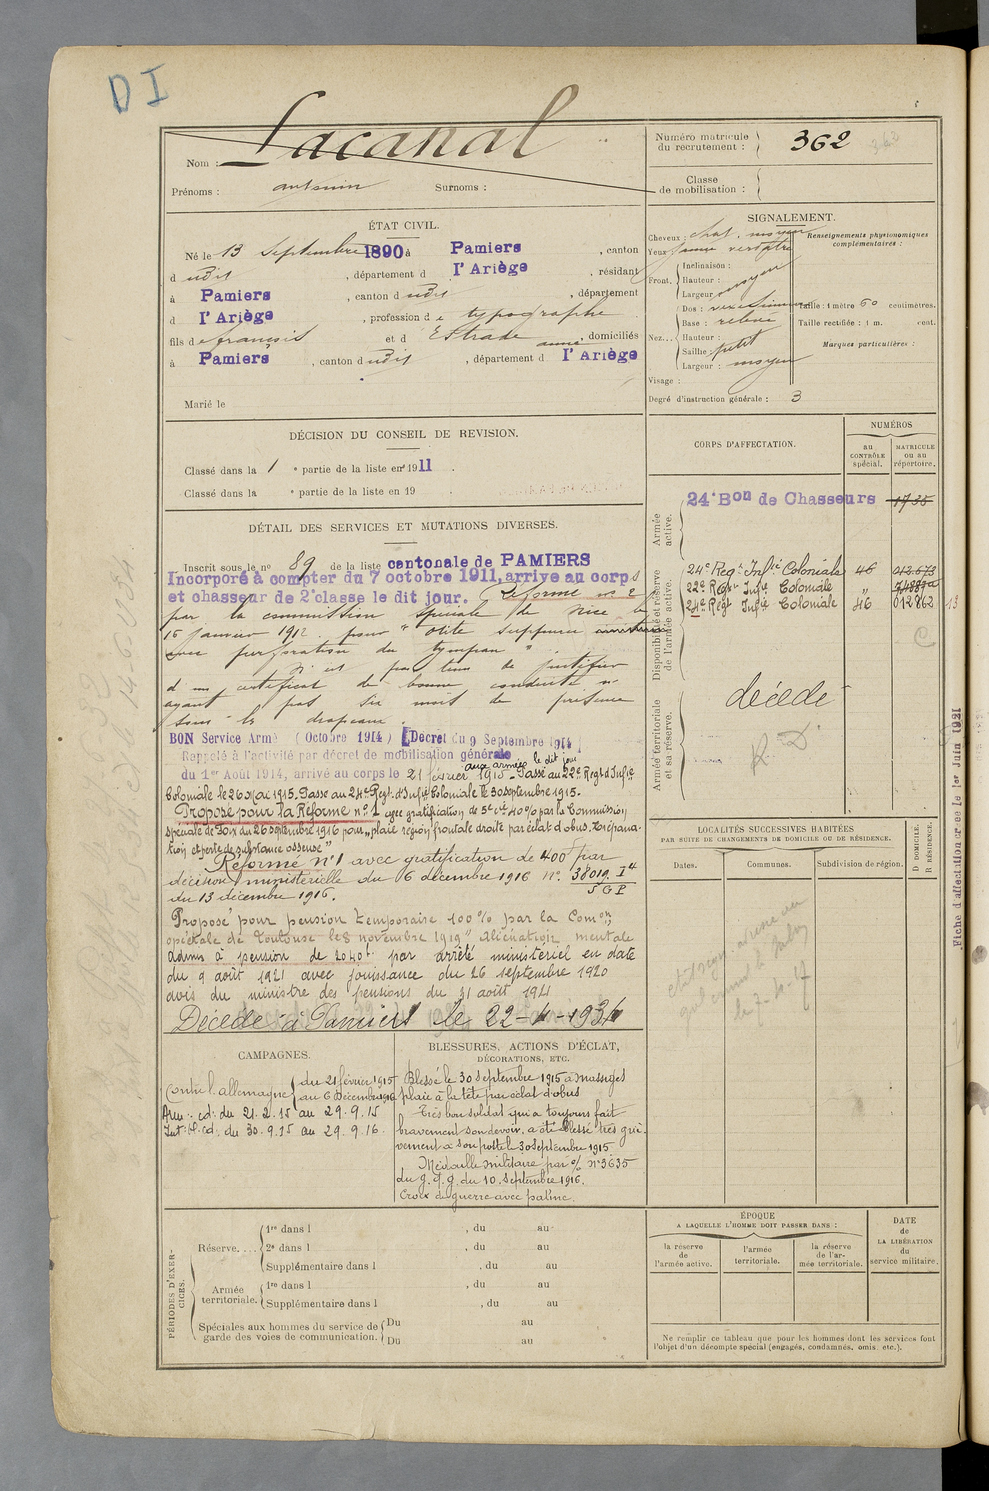 DI
Lacanal
Nom :
Prénoms : antonin Surnoms :
Numéro matricule du recrutement : 362
363
Classe de mobilisation :
ÉTAT CIVIL.
Né le 13 Septembre 1890 à Pamiers, canton
d udit, département d l'Ariège, résidant
à Pamiers, canton d udit, département
d l'Ariège, profession de typographe
fils de françois et d Estrade anne, domiciliés
à Pamiers, canton d udit, département d l'Ariège
Marié le
SIGNALEMENT.
Cheveux : chat. moyen
Yeux jaune verdâtre
Front.
Inclinaison :
Hauteur :
Largeur moyen
Nez...
Dos :
Base : relevé
Hauteur :
Saillie: petit
Largeur : moyen
Visage :
Degré d'instruction générale : 3
Renseignements physionomiques complémentaires :
Taille : 1 mètre 60 centimètres.
Taille rectifiée : 1 m. cent.
Marques particulières :
DÉCISION DU CONSEIL DE REVISION.
Classé dans la 1 e partie de la liste en 1911.
Classé dans la e partie de la liste en 19 .
CORPS D'AFFECTATION.
NUMÉROS
au CONTRÔLE spécial.
MATRICULE ou au répertoire.
Armée active.
24e Bon de Chasseurs 1735
Disponibilité et réserve de l'armée active.
24e Regt Infie Coloniale 46 012.673
22e Regt Infie Coloniale "
24e Régt Infie Coloniale 46 012862
13
Armée territoriale et sa réserve.
décédé
R. D.
DÉTAIL DES SERVICES ET MUTATIONS DIVERSES.
Inscrit sous le no 89 de la liste cantonale de PAMIERS
Incorporé à compter du 7 octobre 1911, arrivé au corps
et chasseur de 2e classe le dit jour. Réformé no 2
par la commission spéciale de Nice le
16 janvier 1912 pour "otite suppurée
avec perforation du tympan".
N'est pas tenu de justifier
d'un certificat de bonne conduite n'
ayant pas six mois de présence
sous les drapeaux.
BON Service Armé (Octobre 1914) [Decret du 9 Septembre 1914]
Rappelé à l'activité par décret de mobilisation générale
aux armées le dit jour
du 1er Août 1914, arrivé au corps le 21 février 1915. Passé au 22e Regt d'Infie
Coloniale le 26 Mai 1915. Passé au 24e Regt d'Infie Coloniale le 30 septembre 1915.
Proposé pour la Réforme no 1 avec gratification de 5e cie 40% par la Commission
spéciale de Foix du 26 septembre 1916 pour "plaie région frontale droite par éclat d'obus. Trépana-
tion et perte de substance osseuse"
Réformé no 1 avec gratification de 400f par
décision ministérielle du 6 décembre 1916 no 38019 I4
5 G P
du 13 décembre 1916.
Proposé pour pension temporaire 100% par la Comon
spéciale de Toulouse le 8 novembre 1919 "Aliénation mentale
admis à pension de 2040f par arrêté ministériel en date
du 9 août 1921 avec jouissance du 26 septembre 1920
avis du ministre des pensions du 31 août 1921
Décédé à Pamiers le 22-4-1934
LOCALITÉS SUCCESSIVES HABITÉES
PAR SUITE DE CHANGEMENTS DE DOMICILE OU DE RÉSIDENCE.
Dates.
Communes.
Subdivision de région.
D DOMICILE.
R RÉSIDENCE.
le 7-10-27
Fiche d'affectation créée le 1er Juin 1921
CAMPAGNES.
Contre l'allemagne du 21 février 1915
au 6 Décembre 1916
Arm : cd: du 21.2.15 au 29.9.15
Int: bl. cd. du 30.9.15 au 29.9.16.
BLESSURES, ACTIONS D'ÉCLAT,
DÉCORATIONS, ETC.
Blessé le 30 Septembre 1915 à massiges
plaie à la tête par éclat d'obus
Très bon soldat qui a toujours fait
bravement son devoir, a été blessé très griè-
vement à son poste le 30 septembre 1915
Médaille militaire par % no 3635
du g.q.g. du 10 Septembre 1916.
Croix de guerre avec palme.
PÉRIODES D'EXERCICES.
Réserve....
1re dans l , du au
2e dans l , du au
Supplémentaire dans l , du au
Armée territoriale.
1re dans l , du au
Supplémentaire dans l , du au
Spéciales aux hommes du service de garde des voies de communication.
Du au
Du au
ÉPOQUE
A LAQUELLE L'HOMME DOIT PASSER DANS :
la réserve de l'armée active.
l'armée territoriale.
la réserve de l'armée territoriale.
DATE de LA LIBÉRATION du service militaire.
Ne remplir ce tableau que pour les hommes dont les services font
l'objet d'un décompte spécial (engagés, condamnés, omis, etc.).